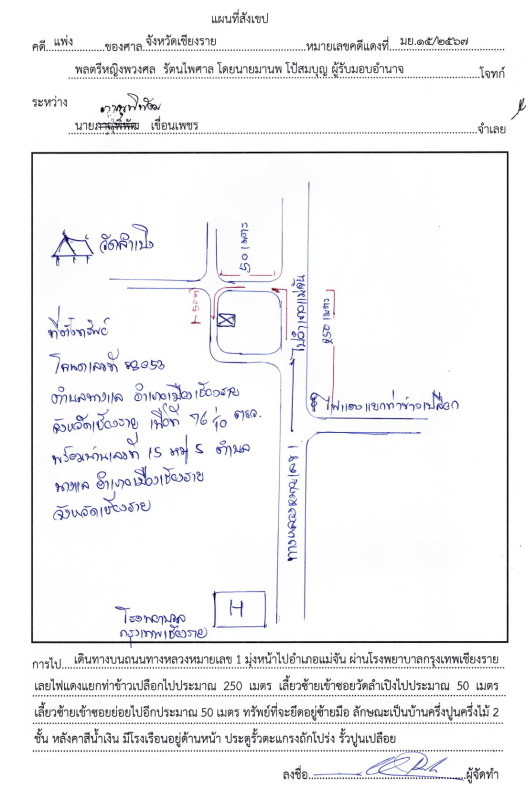 แผนที่สังเขป
คดี แพ่ง ของศาล จังหวัดเชียงราย หมายเลขคดีแดงที่ มย.๑๕/๒๕๖๗
พลตรีหญิงพวงศล รัตนไพศาล โดยนายมานพ โป้สมบุญ ผู้รับมอบอำนาจ โจทก์
ระหว่าง
นาย เขื่อนเพชร จำเลย
วัดลำเปิง
ระยะ 50
50 ม
ระยะ 250
ที่ตั้งทรัพย์
โฉนดเลขที่ 82053
ตำบลนางแล อำเภอเมืองเชียงราย
จังหวัดเชียงราย เนื้อที่ 76 ตรว.
พร้อมบ้านเลขที่ 15 หมู่ 5 ตำบล
นางแล อำเภอเมืองเชียงราย
จังหวัดเชียงราย
ไฟแดงแยกท่าข้าวเปลือก
H
โรงพยาบาล
กรุงเทพเชียงราย
การไป เดินทางบนถนนทางหลวงหมายเลข 1 มุ่งหน้าไปอำเภอแม่จัน ผ่านโรงพยาบาลกรุงเทพเชียงราย
เลยไฟแดงแยกท่าข้าวเปลือกไปประมาณ 250 เมตร เลี้ยวซ้ายเข้าซอยวัดลำเปิงไปประมาณ 50 เมตร
เลี้ยวซ้ายเข้าซอยย่อยไปอีกประมาณ 50 เมตร ทรัพย์ที่จะยึดอยู่ซ้ายมือ ลักษณะเป็นบ้านครึ่งปูนครึ่งไม้ 2
ชั้น หลังคาสีน้ำเงิน มีโรงเรือนอยู่ด้านหน้า ประตูรั้วตะแกรงถักโปร่ง รั้วปูนเปลือย
ลงชื่อ ผู้จัดทำ